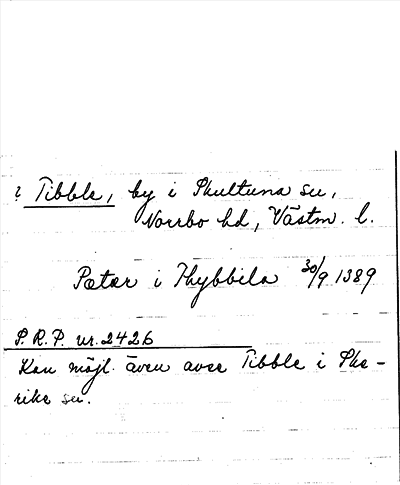 ? Tibble, by i Skultuna sn,
Norrbo hd, Västm. l.
Petær i Thybbila 30/9 1389
S.R.P. nr. 2426
Kan möjl. även avse Tibble i Ske-
rike sn.